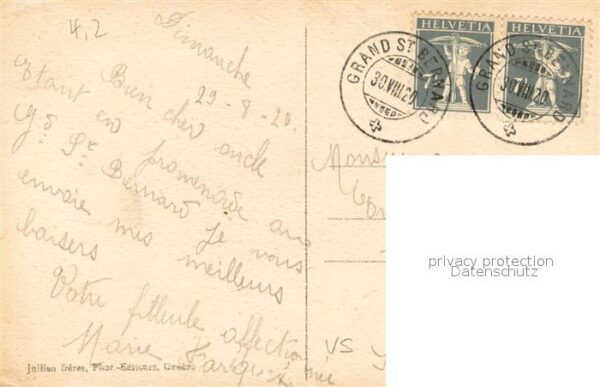 4,2
Dimanche
29-8-20.
Bien cher oncle
Etant en promenade au
Gd St Bernard je vous
envoie mes meilleurs
baisers
Votre filleule affectionnée
Marie
Jullien frères, Phot.-Editeurs, Genève
HELVETIA
HELVETIA
GRAND ST BERNARD
30.VIII.20
GRAND ST BERNARD
30.VIII.20
Monsieur
privacy protection
Datenschutz
VS